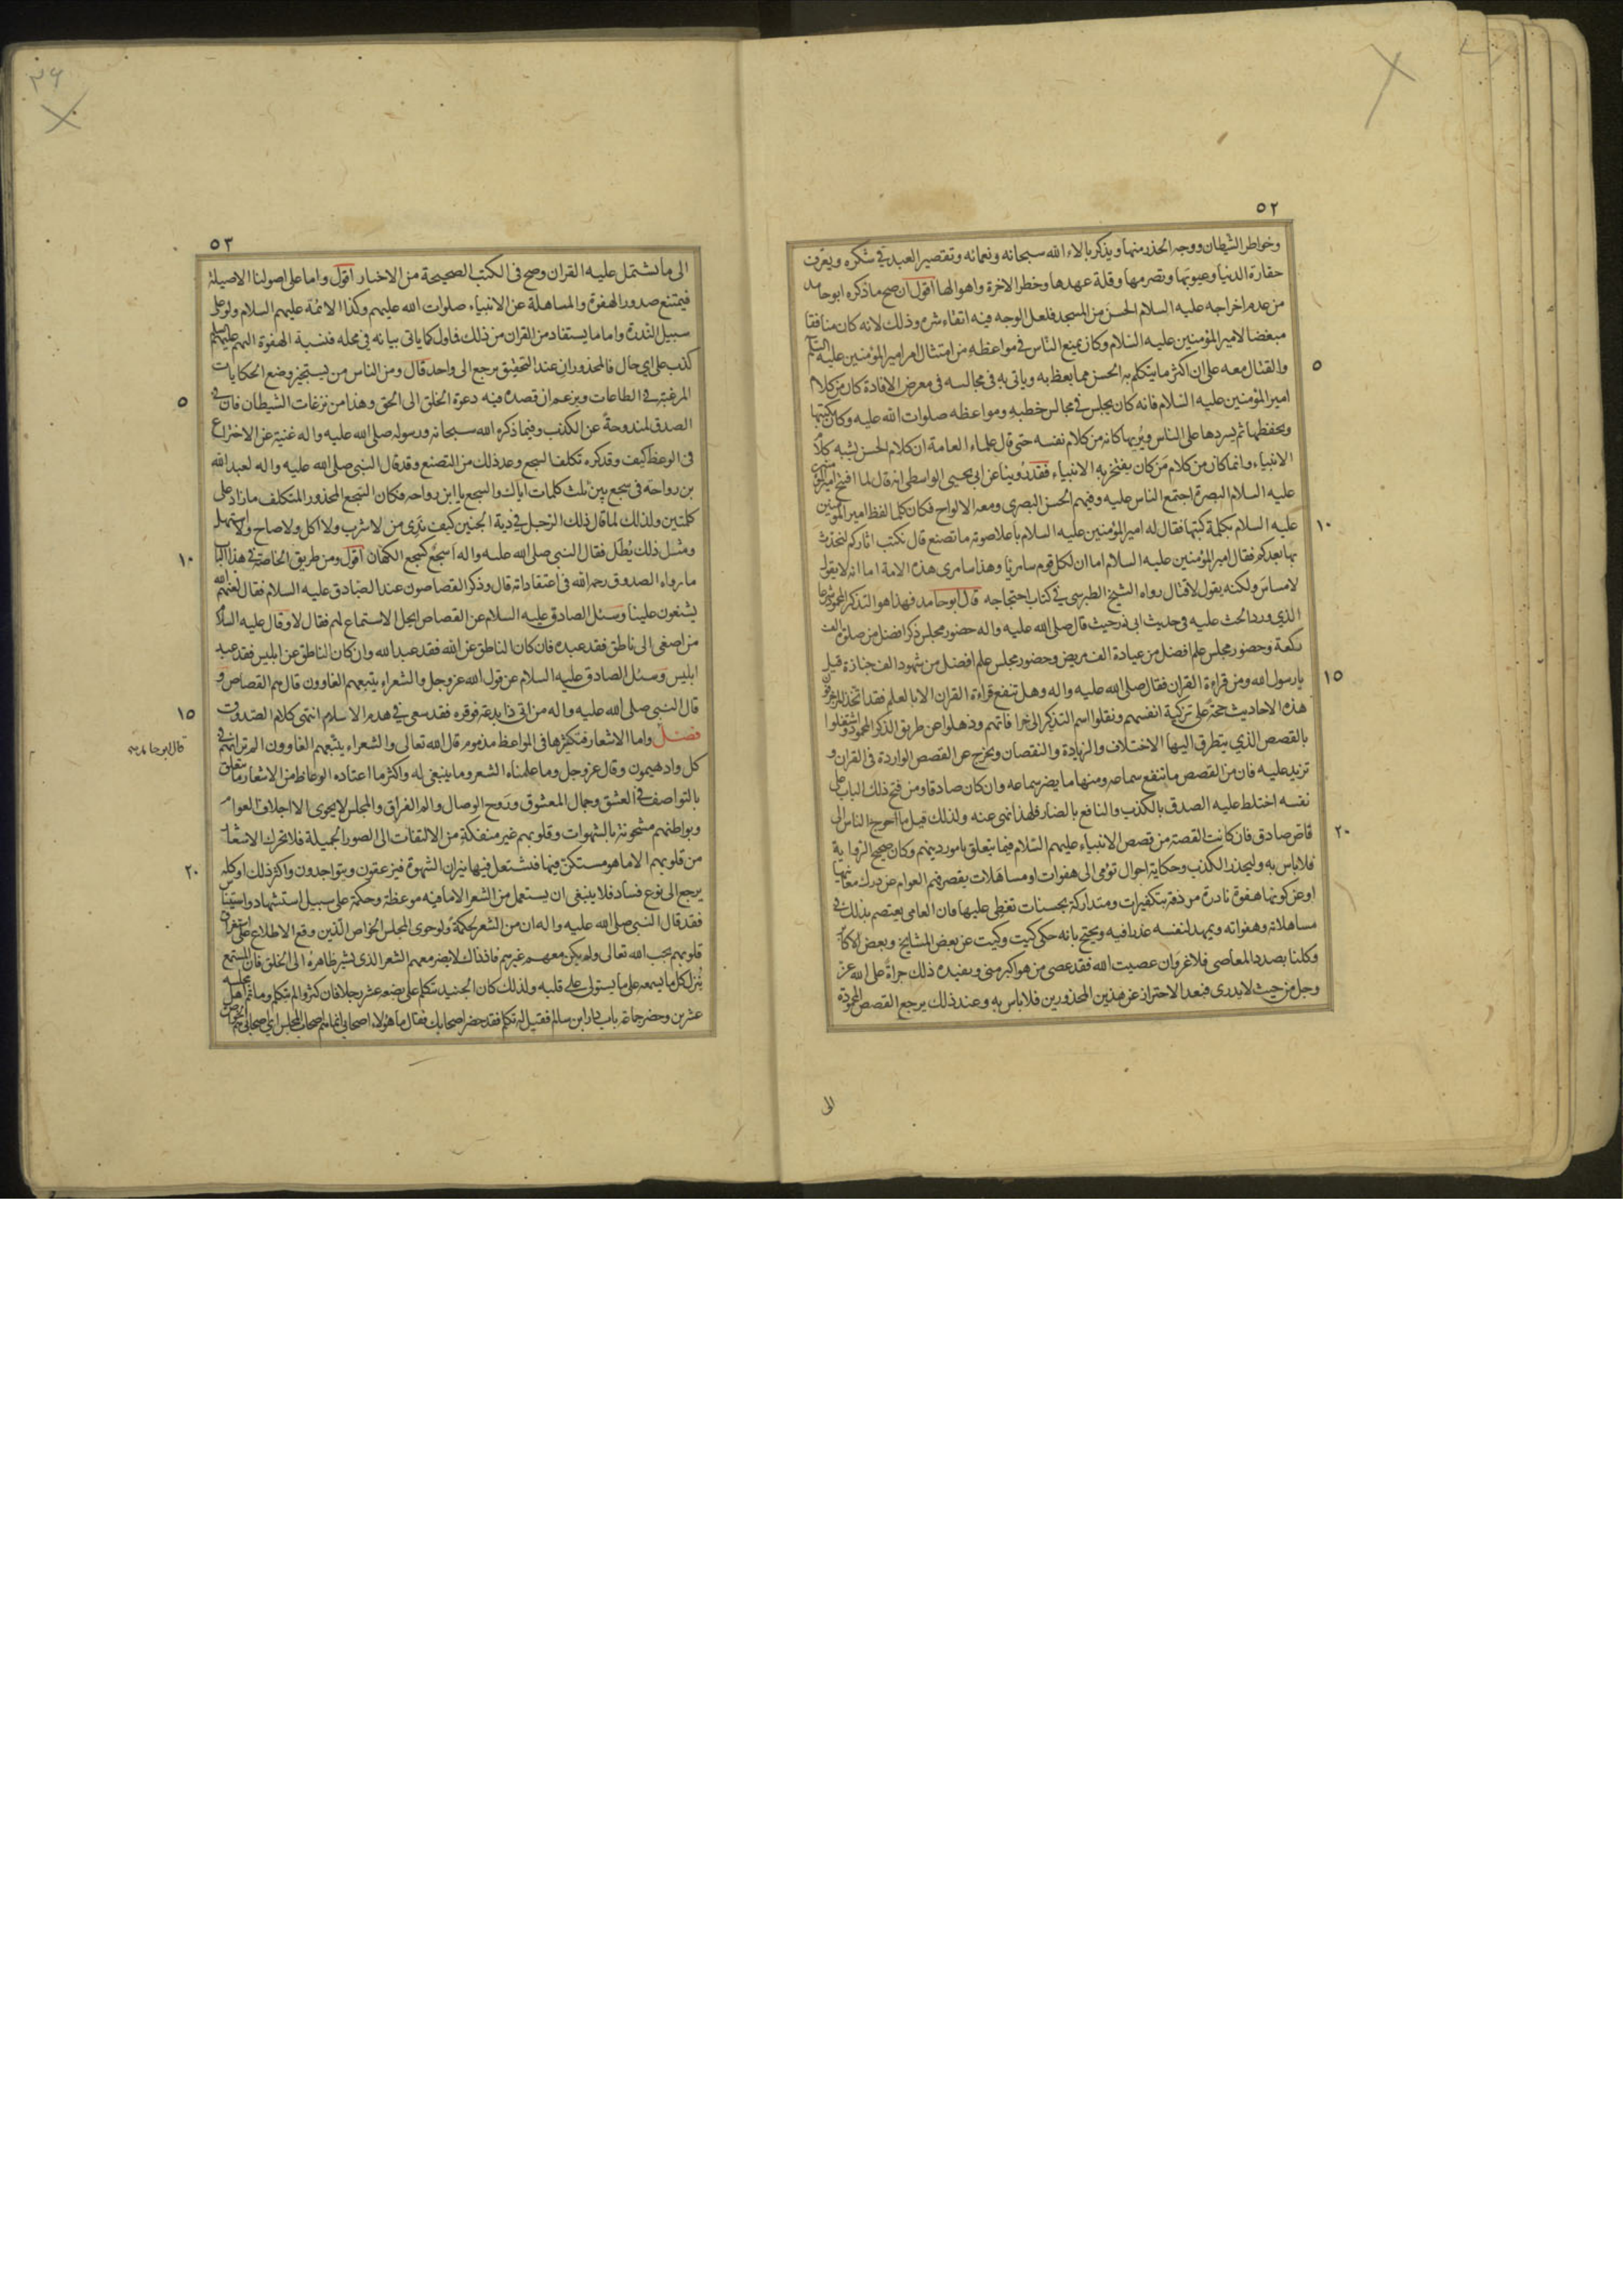 ٥٢
وخواطر الشيطان ووجه الحذر منها ويذكر بالاء الله سبحانه ونعمائه وتقصير العبد في شكره ويعرف
حقارة الدنيا وعيوبها وتصرمها وقلة عهدها وخطر الاخرة واهوالها اقول ان صح ما ذكره ابو حامد
من عدم اخراجه عليه السلام الحسن من المسجد فلعل الوجه فيه اتقاء شره وذلك لانه كان منافقا
مبغضا لامير المؤمنين عليه السلام وكان يمنع الناس في مواعظه من امتثال امر امير المؤمنين عليه السلام
والقتال معه على ان اكثر ما يتكلم به الحسن مما يعظ به وياتى به فى مجالسه فى معرض الافادة كان من كلام
امير المؤمنين عليه السلام فانه كان يجلس في مجالس خطبه ومواعظه صلوات الله عليه وكان يكتبها
ويحفظها ثم يسردها على الناس ويريها كانه من كلام نفسه حتى قال علماء العامة ان كلام الحسن يشبه كلام
الانبياء وانما كان من كلام من كان يفتخر به الانبياء فقد روينا عن ابي يحيى الواسطى انه قال لما افتتح امير المؤمنين
عليه السلام البصرة اجتمع الناس عليه وفيهم الحسن البصرى ومعه الالواح فكان كلما لفظ امير المؤمنين
عليه السلام بكلمة كتبها فقال له امير المؤمنين عليه السلام باعلا صوته ما تصنع قال نكتب اثاركم لنحدث
بها بعدكم فقال امير المؤمنين عليه السلام اما ان لكل قوم سامريا وهذا سامرى هذه الامة اما انه لا يقول
لا مساس ولكنه يقول لا قتال رواه الشيخ الطبرسى في كتاب احتجاجه قال ابو حامد فهذا هو التذكر المحمود شرعا
الذي ورد الحث عليه فى حديث ابى ذر حيث قال صلى الله عليه واله حضور مجلس ذكر افضل من صلوة الف
ركعة وحضور مجلس علم افضل من عيادة الف مريض وحضور مجلس علم افضل من شهود الف جنازة قيل
يا رسول الله ومن قراءة القران فقال صلى الله عليه واله وهل تنفع قراءة القران الا بالعلم فقد اتخذ المزخرفون
هذه الاحاديث حجة على تزكية انفسهم ونقلوا اسم التذكير الى خرافاتهم وذهلوا عن طريق الذكر المحمود واشتغلوا
بالقصص الذي يتطرق اليها الاختلاف والزيادة والنقصان ويخرج عن القصص الواردة فى القران و
تزيد عليه فان من القصص ما تنفع سماعه ومنها ما يضر سماعه وان كان صادقا ومن فتح ذلك الباب على
نفسه اختلط عليه الصدق بالكذب والنافع بالضار فلهذا نهى عنه ولذلك قيل ما احوج الناس الى
قاص صادق فان كانت القصة من قصص الانبياء عليهم السلام فيما يتعلق بامور دينهم وكان صحيح الرواية
فلا باس به وليحذر الكذب وحكاية احوال تومى الى هفوات او مساهلات يقصر فهم العوام عن درك معانيها
او عن كونها هفوة نادرة مردفة بتكفيرات ومتداركة بحسنات تغطى عليها فان العامى يعتصم بذلك في
مساهلاته وهفواته ويمهد لنفسه عذرا فيه ويحتج بانه حكى كيت وكيت عن بعض المشايخ وبعض الاكابر
وكلنا بصدد المعاصى فلا غرو ان عصيت الله فقد عصى من هو اكبر منى ويفيده ذلك جراة على الله عز
وجل من حيث لا يدرى فبعد الاحتراز عن هذين المحذورين فلا باس به وعند ذلك يرجع القصص المحمودة
الى
٥
١٠
١٥
٢٠
٢٦
٥٣
الى ما يشتمل عليه القران وصح فى الكتب الصحيحة من الاخبار اقول واما على اصولنا الاصيلة
فيمتنع صدور الهفوة والمساهلة عن الانبياء صلوات الله عليهم وكذا الائمة عليهم السلام ولو على
سبيل الندرة واما ما يستفاد من القران من ذلك فاول كما ياتى بيانه في محله فنسبة الهفوة اليهم عليهم السلم
كذب على اى حال فالمحذوران عند التحقيق يرجع الى واحد قال ومن الناس من يستجيز وضع الحكايات
المرغبة في الطاعات ويزعم ان قصده فيه دعوة الخلق الى الحق وهذا من نزغات الشيطان فان في
الصدق لمندوحة عن الكذب وفيما ذكره الله سبحانه ورسوله صلى الله عليه واله غنية عن الاختراع
فى الوعظ كيف وقد كره تكلف السجع وعد ذلك من التصنع وقد قال النبى صلى الله عليه واله لعبد الله
بن رواحة فى سجع بين ثلث كلمات اياك والسجع يا ابن رواحه فكان السجع المحذور المتكلف ما زاد على
كلمتين ولذلك لما قال ذلك الرجل في دية الجنين كيف ندى من لا شرب ولا اكل ولا صاح ولا استهل
ومثل ذلك يطل فقال النبى صلى الله عليه واله اسجع كسجع الكهان اقول ومن طريق الخاصة في هذا الباب
ما رواه الصدوق رحمه الله فى اعتقاداته قال وذكر القصاصون عند الصادق عليه السلام فقال لعنهم الله
يشنعون علينا وسئل الصادق عليه السلام عن القصاص ايحل الاستماع لهم فقال لا وقال عليه السلام
من اصغى الى ناطق فقد عبده فان كان الناطق عن الله فقد عبد الله وان كان الناطق عن ابليس فقد عبد
ابليس وسئل الصادق عليه السلام عن قول الله عز وجل والشعراء يتبعهم الغاوون قال هم القصاص و
قال النبى صلى الله عليه واله من اتى ذا بدعة فوقره فقد سعى في هدم الاسلام انتهى كلام الصدوق
فصل واما الاشعار فتكثيرها فى المواعظ مذموم قال الله تعالى والشعراء يتبعهم الغاوون الم تر انهم في
كل واد يهيمون وقال عز وجل وما علمناه الشعر وما ينبغى له واكثر ما اعتاده الوعاظ من الاشعار ما يتعلق
بالتواصف في العشق وجمال المعشوق وروح الوصال والم الفراق والمجلس لا يحوى الا اجلاف العوام
وبواطنهم مشحونة بالشهوات وقلوبهم غير منفكة من الالتفات الى الصور الجميلة فلا تحرك الاشعار
من قلوبهم الا ما هو مستكن فيها فتشتعل فيها نيران الشهوة فيزعقون ويتواجدون واكثر ذلك او كله
يرجع الى نوع فساد فلا ينبغى ان يستعمل من الشعر الا ما فيه موعظة وحكمة على سبيل استشهاد واستيناس
فقد قال النبى صلى الله عليه واله ان من الشعر لحكمة ولو حوى المجلس الخواص الذين وقع الاطلاع على استغراق
قلوبهم بحب الله تعالى ولم يكن معهم غيرهم فاذ ذاك لا يضر معهم الشعر الذى يشير ظاهره الى الخلق فان المستمع
ينزل كل ما يسمعه على ما يستولى على قلبه ولذلك كان الجنيد يتكلم على بضعة عشر رجلا فان كثروا لم يتكلم وما تم اهل مجلسه
عشرين وحضر جماعة باب دار ابن سالم فقيل له تكلم فقد حضر اصحابك فقال ما هؤلاء اصحابى انما هم اصحاب المجلس اى اصحابى هم الخواص
٥
١٠
١٥
٢٠
قال ابو حامد